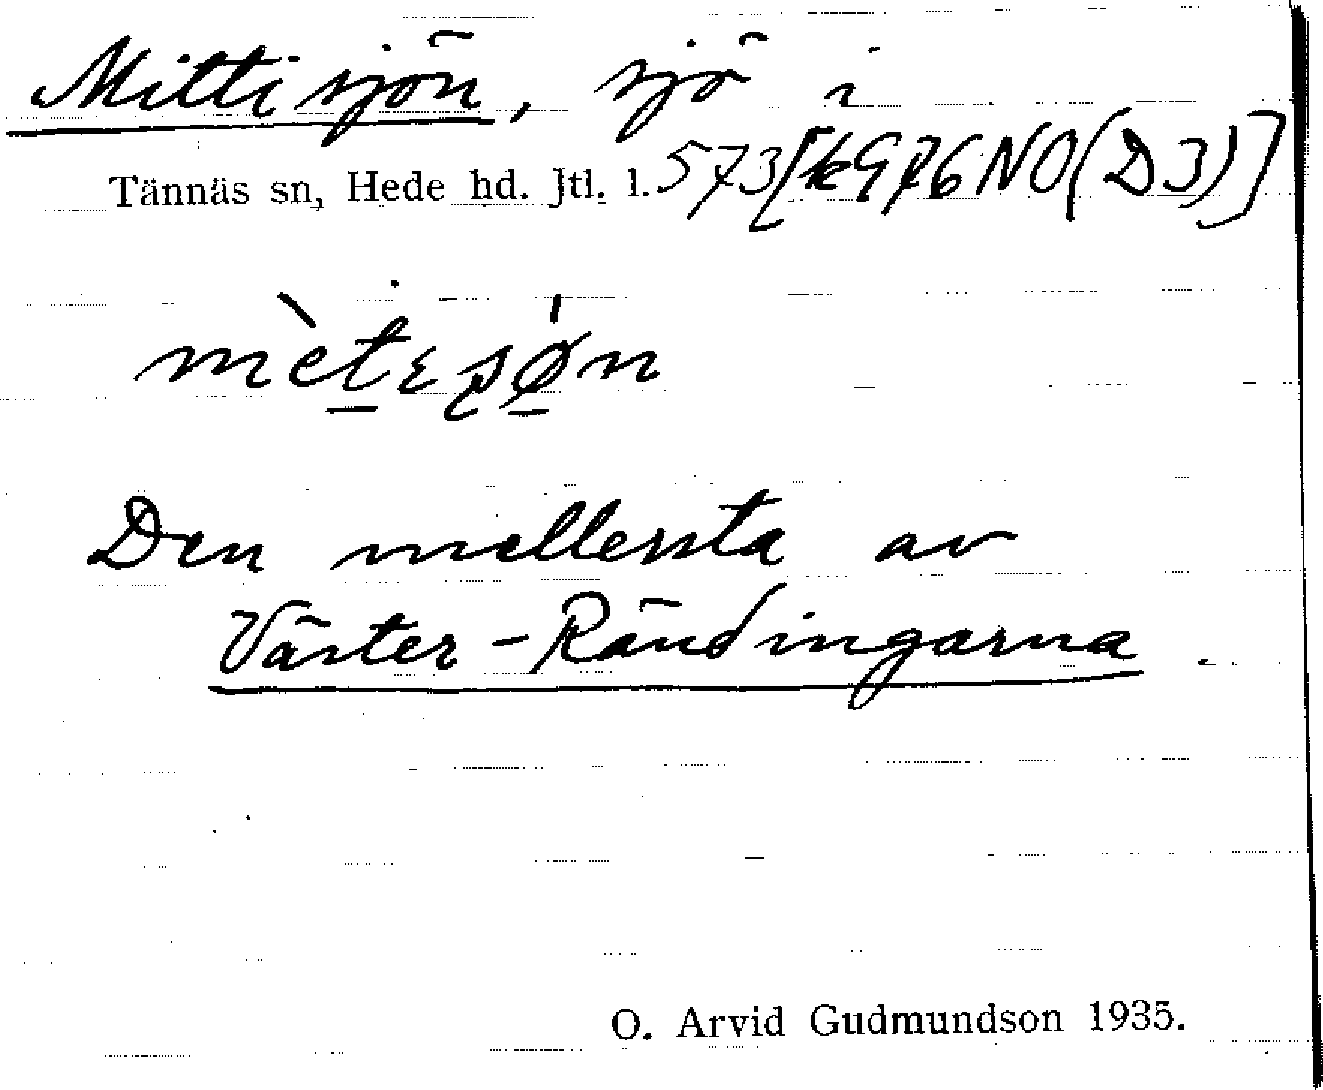 Mittisjön, sjö i
Tännäs sn, Hede hd. Jtl. l. 573[k976NO(D3)]
Den mellersta av
Väster-Rändingarna.
O. Arvid Gudmundson 1935.